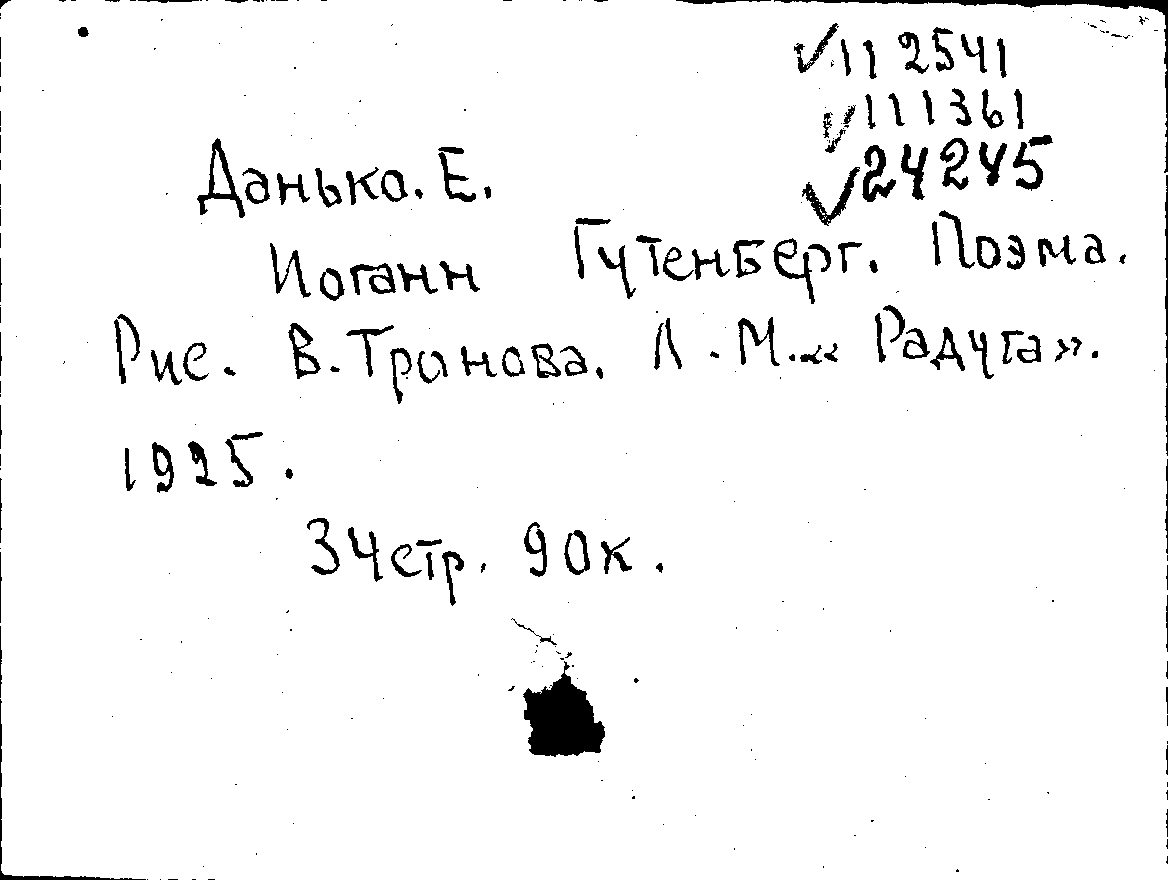 ✓112541
✓111361
✓24245
Данько. Е.
Иоганн Гутенберг. Поэма.
Рис. В. Транова. Л. М. «Радуга».
1925.
34стр. 90к.